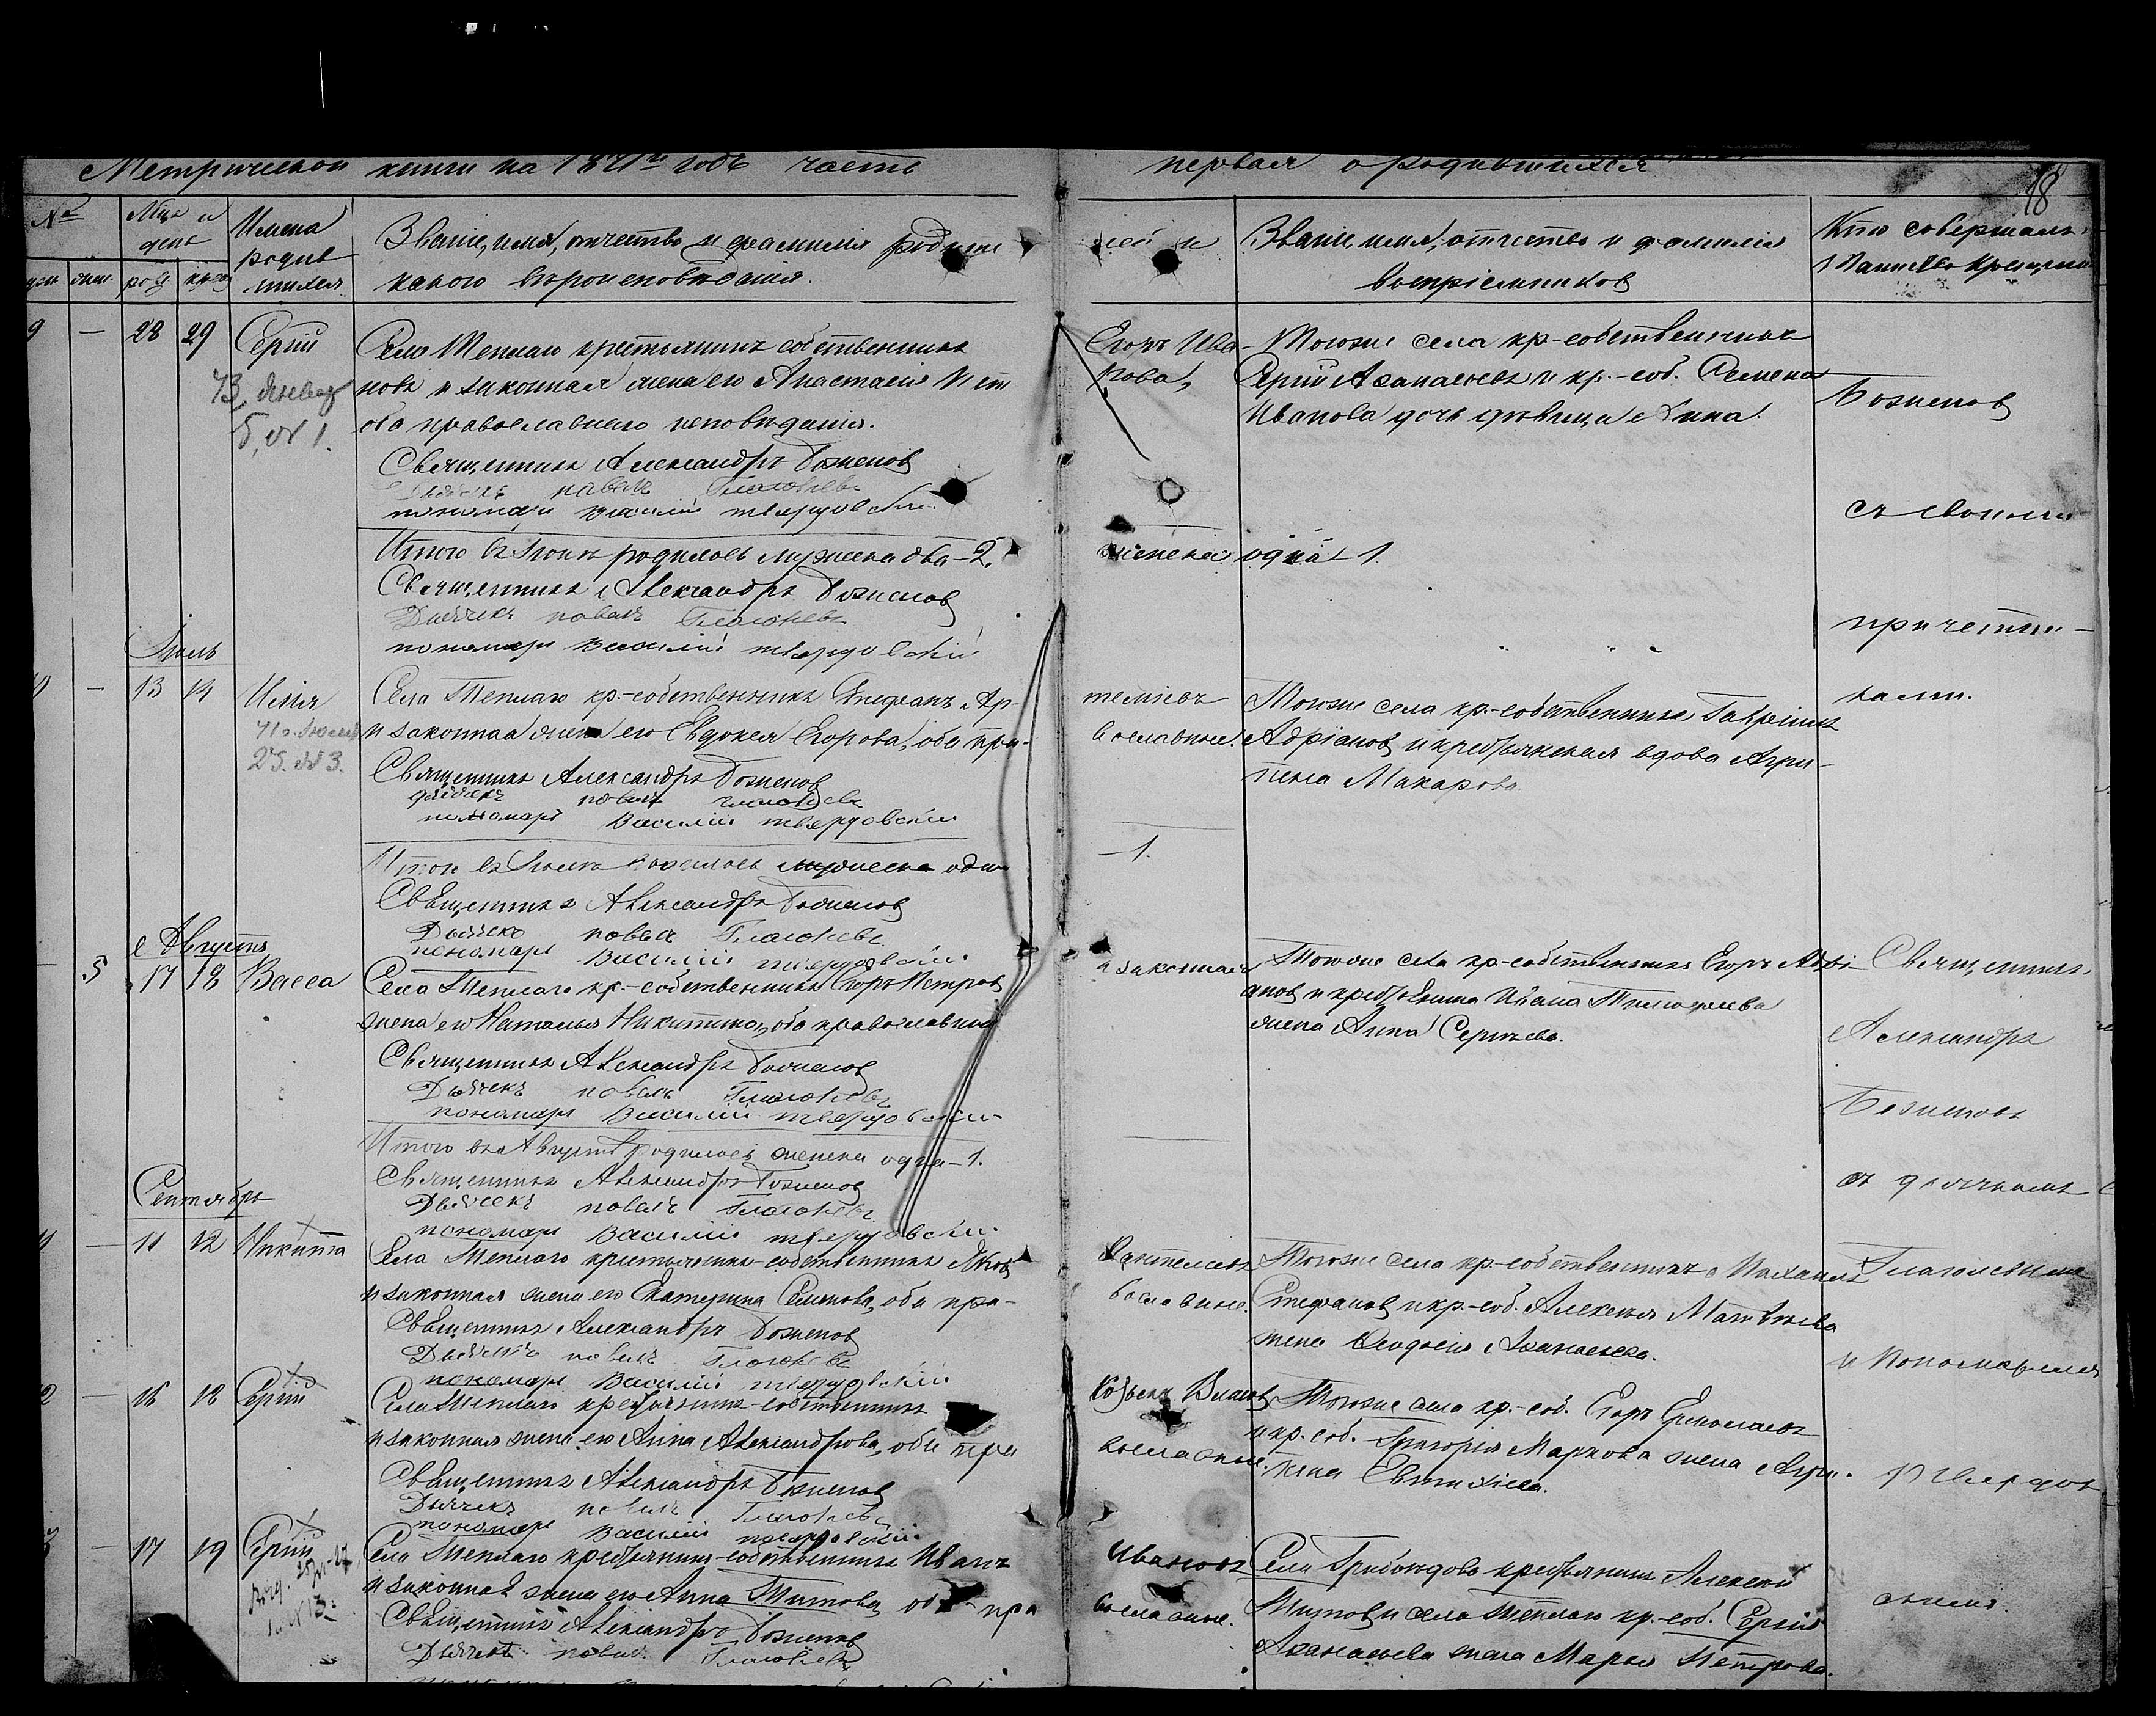 Метрической книги на 1871й годъ часть первая о родившихся
18
№
Мцъ и день
Имена родив шихся
Званіе, имя, отчество и фамилія родите лей и
какого вѣроисповѣданія.
Званіе, имя, отчество и фамилія
воспріемниковъ
Кто совершалъ
Таинство крещенія
род крещ
9 — 28 29 Сергій
Села Теплаго крестьянинъ собственникъ Егоръ Ива
новъ и законная жена его Анастасія
оба православнаго исповѣданія.
Священникъ Александръ
Дьячекъ Павелъ Глаголевъ
пономарь Василій Твердовскій
Тогоже села кр-собственникъ
Сергій Аѳанасьевъ и кр.-соб. Семена
Иванова дочь дѣвица Анна.
съ своими
причетни-
ками.
Итого въ Іюнѣ родилось мужеска два-2, женска одна 1.
Священникъ Александръ
Дьячекъ Павелъ Глаголевъ
пономарь Василій Твердовскій
Іюль
— 13 14 Илія
Села Теплаго кр.-собственникъ Стефанъ Ар-
темьевъ
и законная жена его Евдокея Егорова, оба пра-
вославные.
Священникъ Александръ
дьячекъ Павелъ Глаголевъ
пономарь Василій Твердовскій
25. № 3.
Тогоже села кр.-собственникъ Гавріилъ
Адріановъ и крестьянская вдова Агри-
пена Макарова
Итого въ Іюлѣ родилось мужеска одинъ
—1.
Священникъ Александръ
Дьячекъ Павелъ Глаголевъ
пономарь Василій Твердовскій
Августъ
5 17 18 Васса
Села Теплаго кр.-собственникъ Егоръ Петровъ
и законная
жена его Наталья Никитина, оба православные
Священникъ Александръ
Дьячекъ Павелъ Глаголевъ
пономарь Василій Твердовскій
Тогоже села кр-собственникъ Егоръ Адрі-
ановъ и крестьянина Ивана Тимофеева
жена Анна Сергѣева.
Священникъ
Александръ
Итого въ Августѣ родилось женска одна-1.
Священникъ Александръ
Дьячекъ Павелъ Глаголевъ
пономарь Василій Твердовскій
съ дьячкомъ
Сентябрь
— 11 12 Никита
Села Теплаго крестьянинъ-собственникъ Яковъ
Пантелеевъ
и законная жена его Екатерина Семенова, оба пра-
вославные.
Священникъ Александръ
Дьячекъ Павелъ Глаголевъ
пономарь Василій Твердовскій
Тогоже села кр-собственникъ Михаилъ
Стефановъ и кр.-соб. Алексея Матвѣева
жена Аѳанасьева.
Глаголевымъ
и Пономаремъ
— 16 18 Сергій
Села Теплаго крестьянинъ-собственникъ
Власовъ
и законная жена его Анна Александрова, оба пра
вославные.
Священникъ Александръ
Дьячекъ Павелъ Глаголевъ
пономарь Василій Твердовскій
Тогоже села кр.-соб. Егоръ Ермолаевъ
и кр. соб. Григорія Маркова жена Агри-
пена Евтихіева.
Твердов
скимъ.
— 17 19 Сергій
Села Теплаго крестьянинъ-собственникъ Иванъ
Ивановъ
и законная жена его Анна Титова, оба пра
вославные.
Священникъ Александръ
Дьячекъ Павелъ Глаголевъ
Села Грибоѣдова крестьянинъ Алексей
Титовъ и села Теплаго кр.-соб. Сергія
Аѳанасьева жена Марья Петрова.